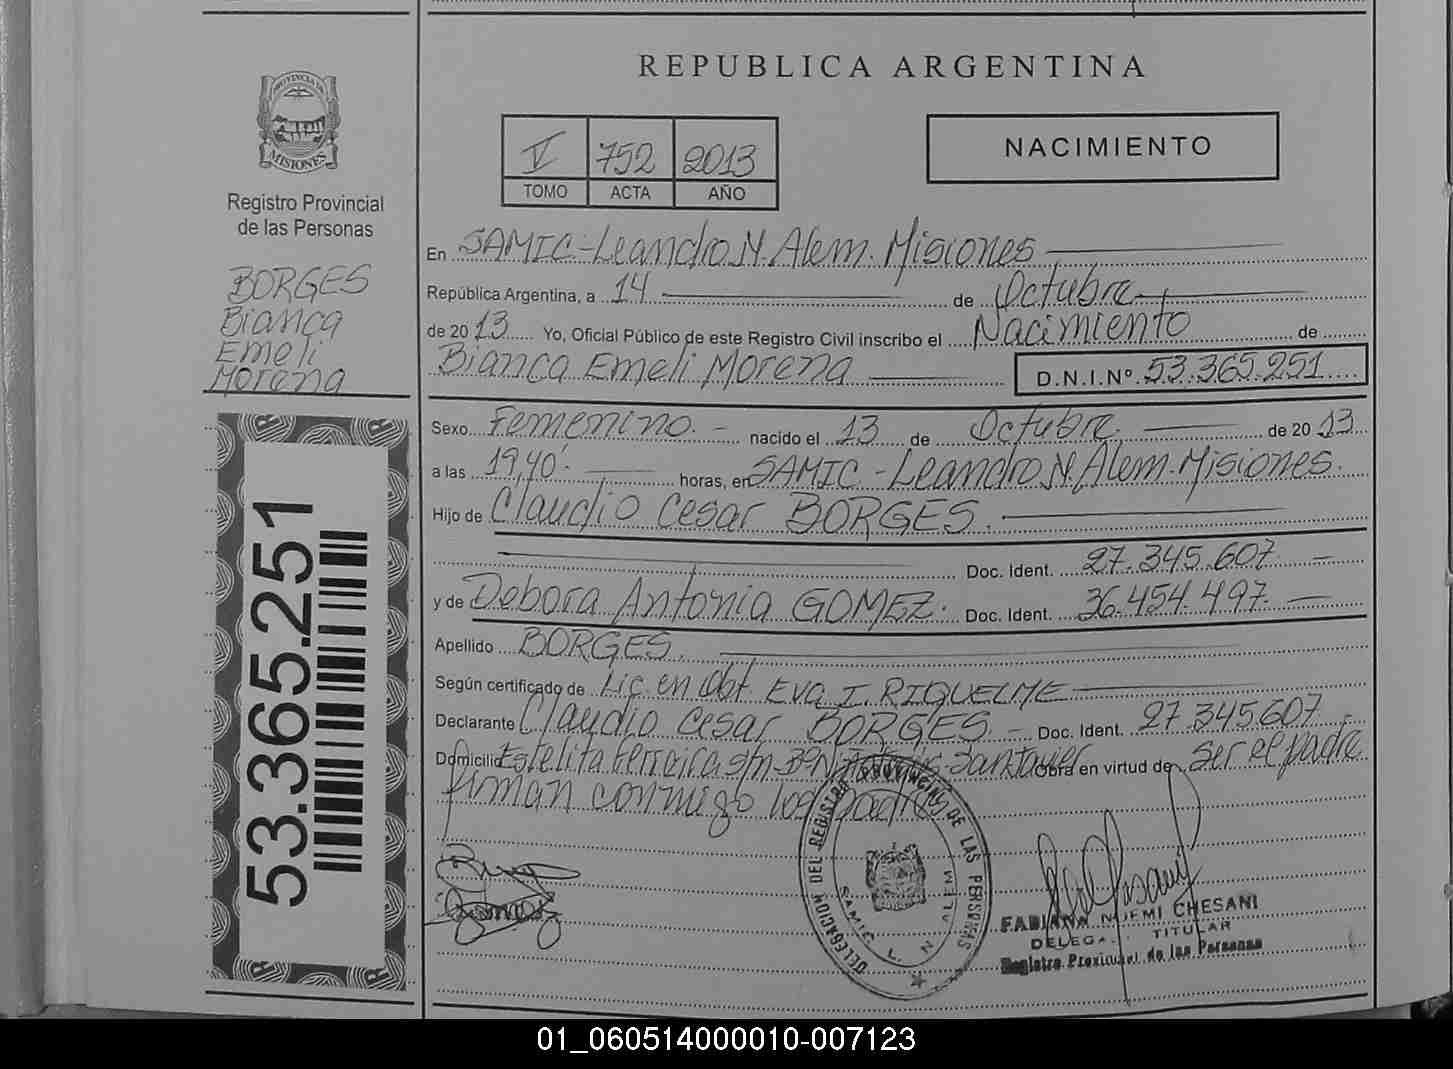 REPUBLICA ARGENTINA
PROVINCIA DE
MISIONES
Registro Provincial
de las Personas
BORGES
Bianca
Emeli
Morena
53.365.251
V 752 2013
TOMO ACTA AÑO
NACIMIENTO
En SAMIC-Leandro N. Alem. Misiones
República Argentina, a 14 de Octubre
de 2013 Yo, Oficial Público de este Registro Civil inscribo el Nacimiento de
Bianca Emeli Morena D.N.I.Nº 53.365.251
Sexo Femenino. - nacido el 13 de Octubre de 2013
a las 19,40'- horas, en SAMIC.-Leandro N. Alem-Misiones.
Hijo de Claudio Cesar BORGES.
Doc. Ident. 27.345.607-
y de Debora Antonia GOMEZ. Doc. Ident. 36.454.497.-
Apellido BORGES.
Según certificado de Lic. en Obt. EVA I. RIQUELME
Declarante Claudio Cesar BORGES - Doc. Ident. 27.345.607.-
Domicilio Estelita Ferreira s/n Bº Obra en virtud de Ser el padre
firman conmigo los padres
DELEGACION DEL REGISTRO PROVINCIAL DE LAS PERSONAS
SAMIC L. N. ALEM
FABIANA NOEMI CHESANI
DELEGADA TITULAR
Registro Provincial de las Personas
01_060514000010-007123